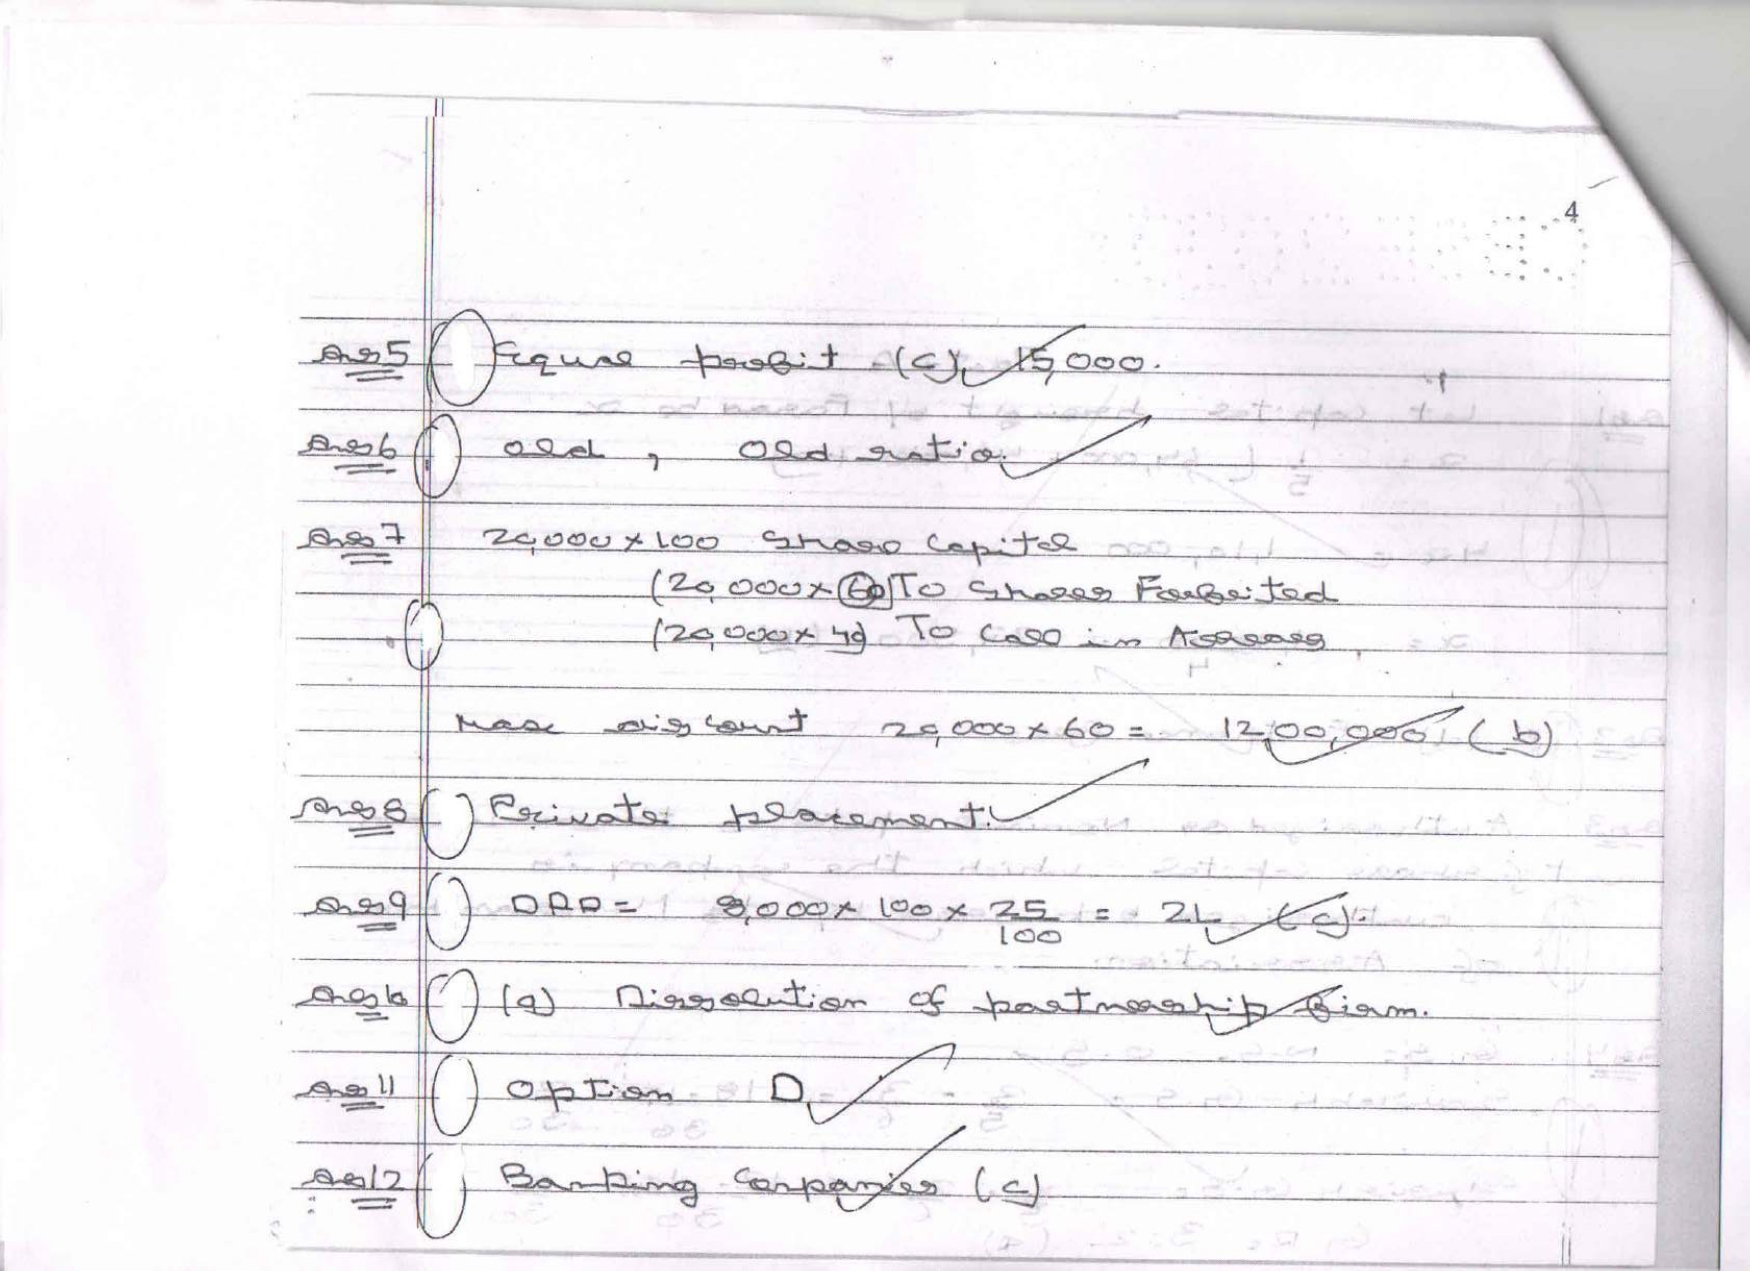 4
Ans 5 Equal profit (c) 15,000.
Ans 6 Old , Old ratio.
Ans 7 20,000 × 100 Share Capital
(20,000 × 60) To Shares Forfeited
(20,000 × 40) To Call in Arrears
Max discount 20,000 × 60 = 12,00,000 (b)
Ans 8 Private placement.
Ans 9 DRR = 8,000 × 100 × 25/100 = 2L (c).
Ans 10 (a) Dissolution of partnership firm.
Ans 11 Option D
Ans 12 Banking Companies (c)